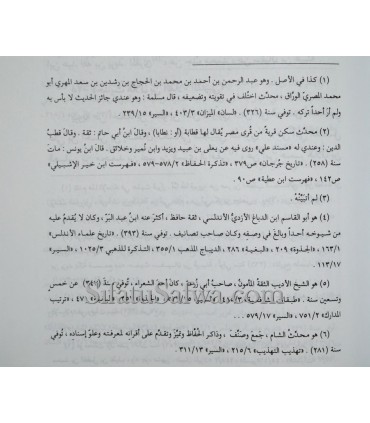 (١) كذا في الأصل . وهو عبد الرحمن بن أحمد بن محمد بن الحجاج بن رشدين بن سعد المهري أبو
محمد المصري الورَّاق ، محدّث اختلف في تقويته وتضعيفه ، قال مسلمة : وهو عندي جائز الحديث لا بأس به
ولم أرَ أحداً تركه . توفي سنة (٣٢٦) . «لسان الميزان» ٤٠٣/٣ ، «السير» ٢٣٩/١٥ .
(٢) محدّث سكن قرية من قُرى مصر يُقال لها قطابة (أو : نطابا) . قال ابنُ أبي حاتم : ثقة . وقال قطبُ
الدين : وعندي له «مسند علي» . روى فيه عن يعلى بن عبيد ويزيد وابن نُمير وخلائق . قال ابنُ يونس : ماتَ
سنة (٢٥٨) . «تاريخ جُرجان» ص٣٧٩ ، «تذكرة الحفاظ» ٥٧٨/٢-٥٧٩ ، «فهرست ابن خير الإشبيلي»
ص١٤٢ ، «فهرست ابن عطية» ص٩٠ .
(٣) لم أتبيَّنْهُ .
(٤) هو أبو القاسم ابن الدباغ الأزديُّ الأندلسي ، ثقة حافظ ، أكثرَ عنه ابنُ عبد البَرّ ، وكان لا يُقدِّم عليه
من شيوخه أحداً وبالغ في وصفه وكان صاحب تصانيف . توفي سنة (٣٩٣) . «تاريخ علماء الأندلس»
١٦٣/١ ، «الجذوة» ٢٠٩ ، «البغية» ٢٨٦ ، الديباج المذهب ٣٥٥/١ ، التذكرة للذهبي ١٠٢٥/٣ ، «السير»
١١٣/١٧ .
(٥) هو الشيخ الأديب الثقةُ المأمونُ ، صاحبُ أبي زُرعة ، كان أحدَ الشعراء ، تُوفيَ سنة (٣٤١) عن خمسٍ
وتسعين سنة .
٥٧٩/١٧ ، «السير»
(٦) هو محدِّث الشام ، جَمعَ وصَنَّفَ ، وذاكر الحُفَّاظ وتميَّز وتقدَّم على أقرانه لمعرفته وعلوِّ إسناده ، تُوفي
سنة (٢٨١) . «تهذيب التهذيب» ٢١٥/٦ ، «السير» ٣١١/١٣ .